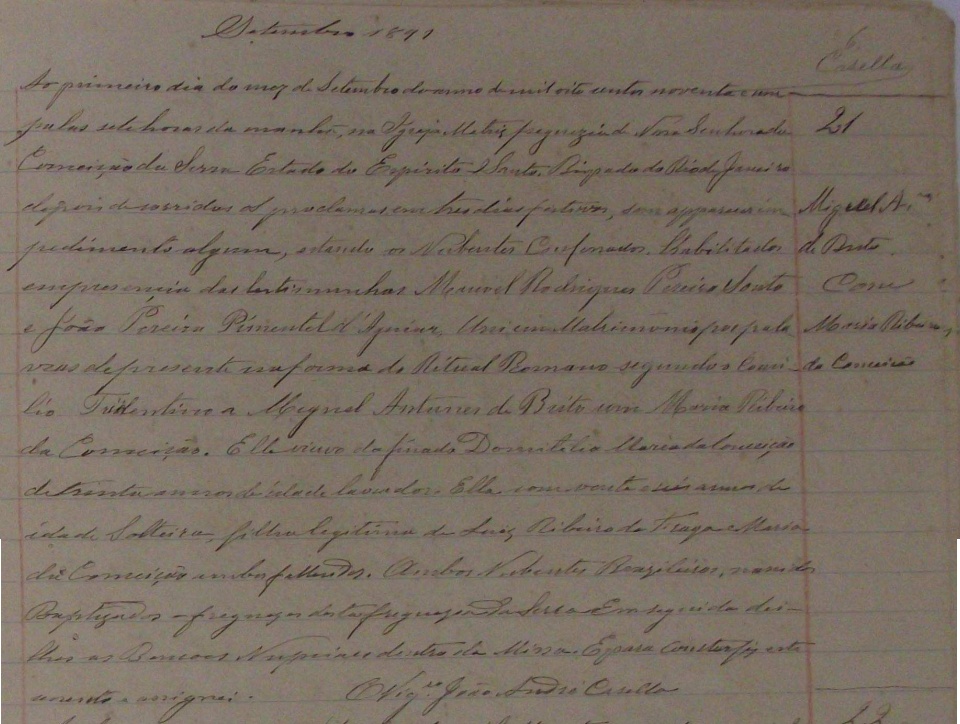 Setembro 1891
Casella
Ao primeiro dia do mez de Setembro do anno de mil oito centos noventa e um
pelas sete horas da manhã, na Igreja Matriz freguezia de Nossa Senhora da
21
Conceição da Serra Estado do Espirito Santo, Bispado do Rio de Janeiro
depois de corridos os proclamas em tres dias festivos, sem apparecer im
Miguel A.
pedimento algum, estando os Nubentes Confessados, Habilitados
de Brito.
em presencia das testimunhas Manoel Rodrigues Pereira Souto
Com
e João Pereira Pimentel d'Aguiar, Uni em Matrimonio por pala
Maria Ribeiro
vras de presente na forma do Ritual Romano segundo o Conci-
da Conceicão
lio Tridentino a Miguel Antunes de Brito com Maria Ribeiro
da Conceição. Elle viuvo da finada Domitilia Maria da Conceição
de trinta annos de idade lavrador. Ella com vente e seis annos de
idade Solteira, filha legitima de Luiz Ribeiro de Fraga e Maria
da Conceição ambos fallecidos. Ambos Nubentes Brazileiros, nascidos
Baptizados e freguezes desta freguezia da Serra Em seguida dei-
lhes as Bencoes Nupciaes dentro da Missa. E para constar fiz este
assento e assignei.
O Vig.ro João André Casella